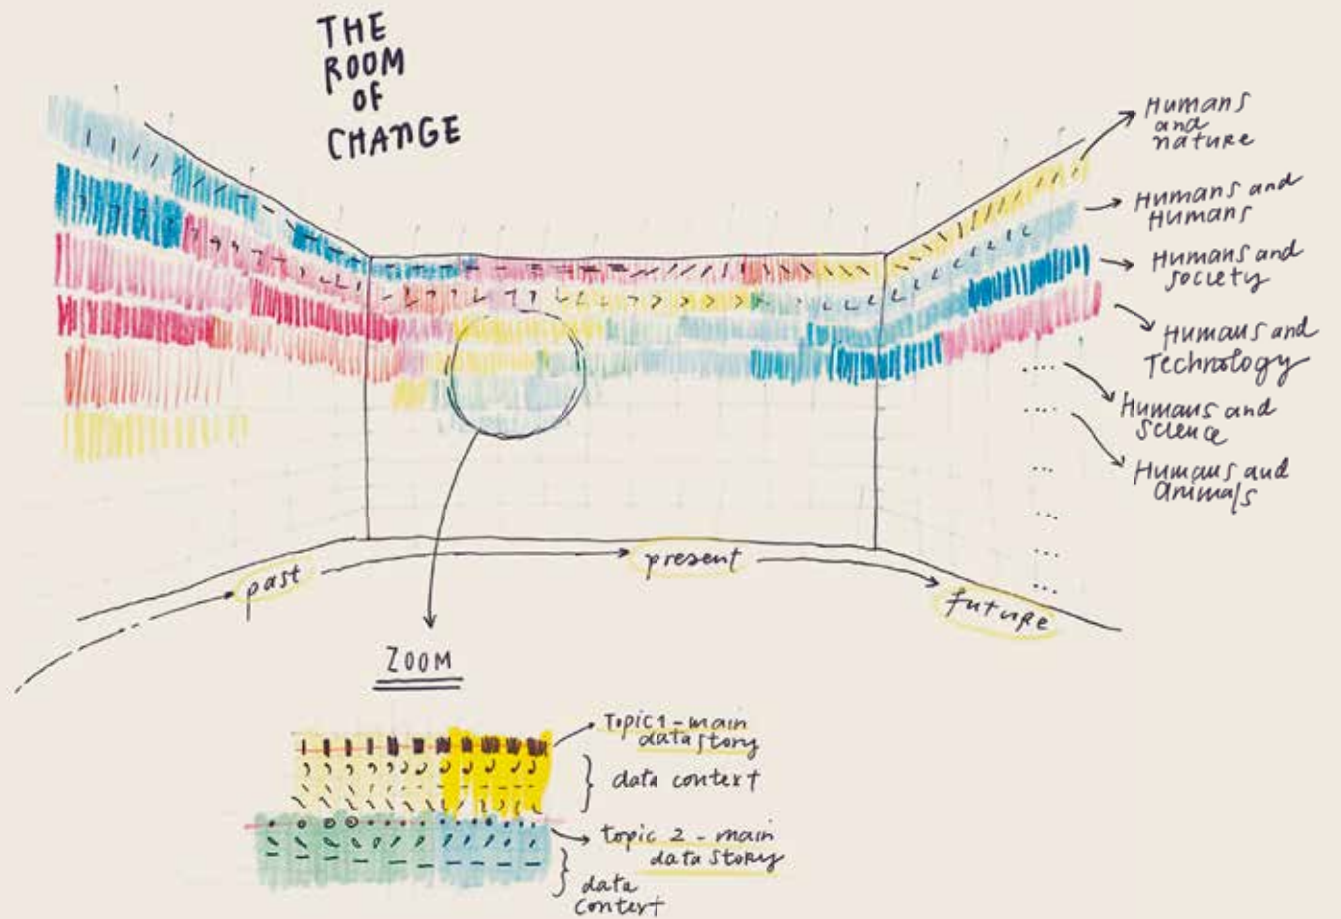 THE
ROOM
OF
CHANGE
Humans
and
nature
Humans and
Humans
Humans and
society
Humans and
Technology
Humans and
Science
Humans and
animals
past
present
future
ZOOM
Topic 1 - main
data story
data context
topic 2 - main
data story
data
context